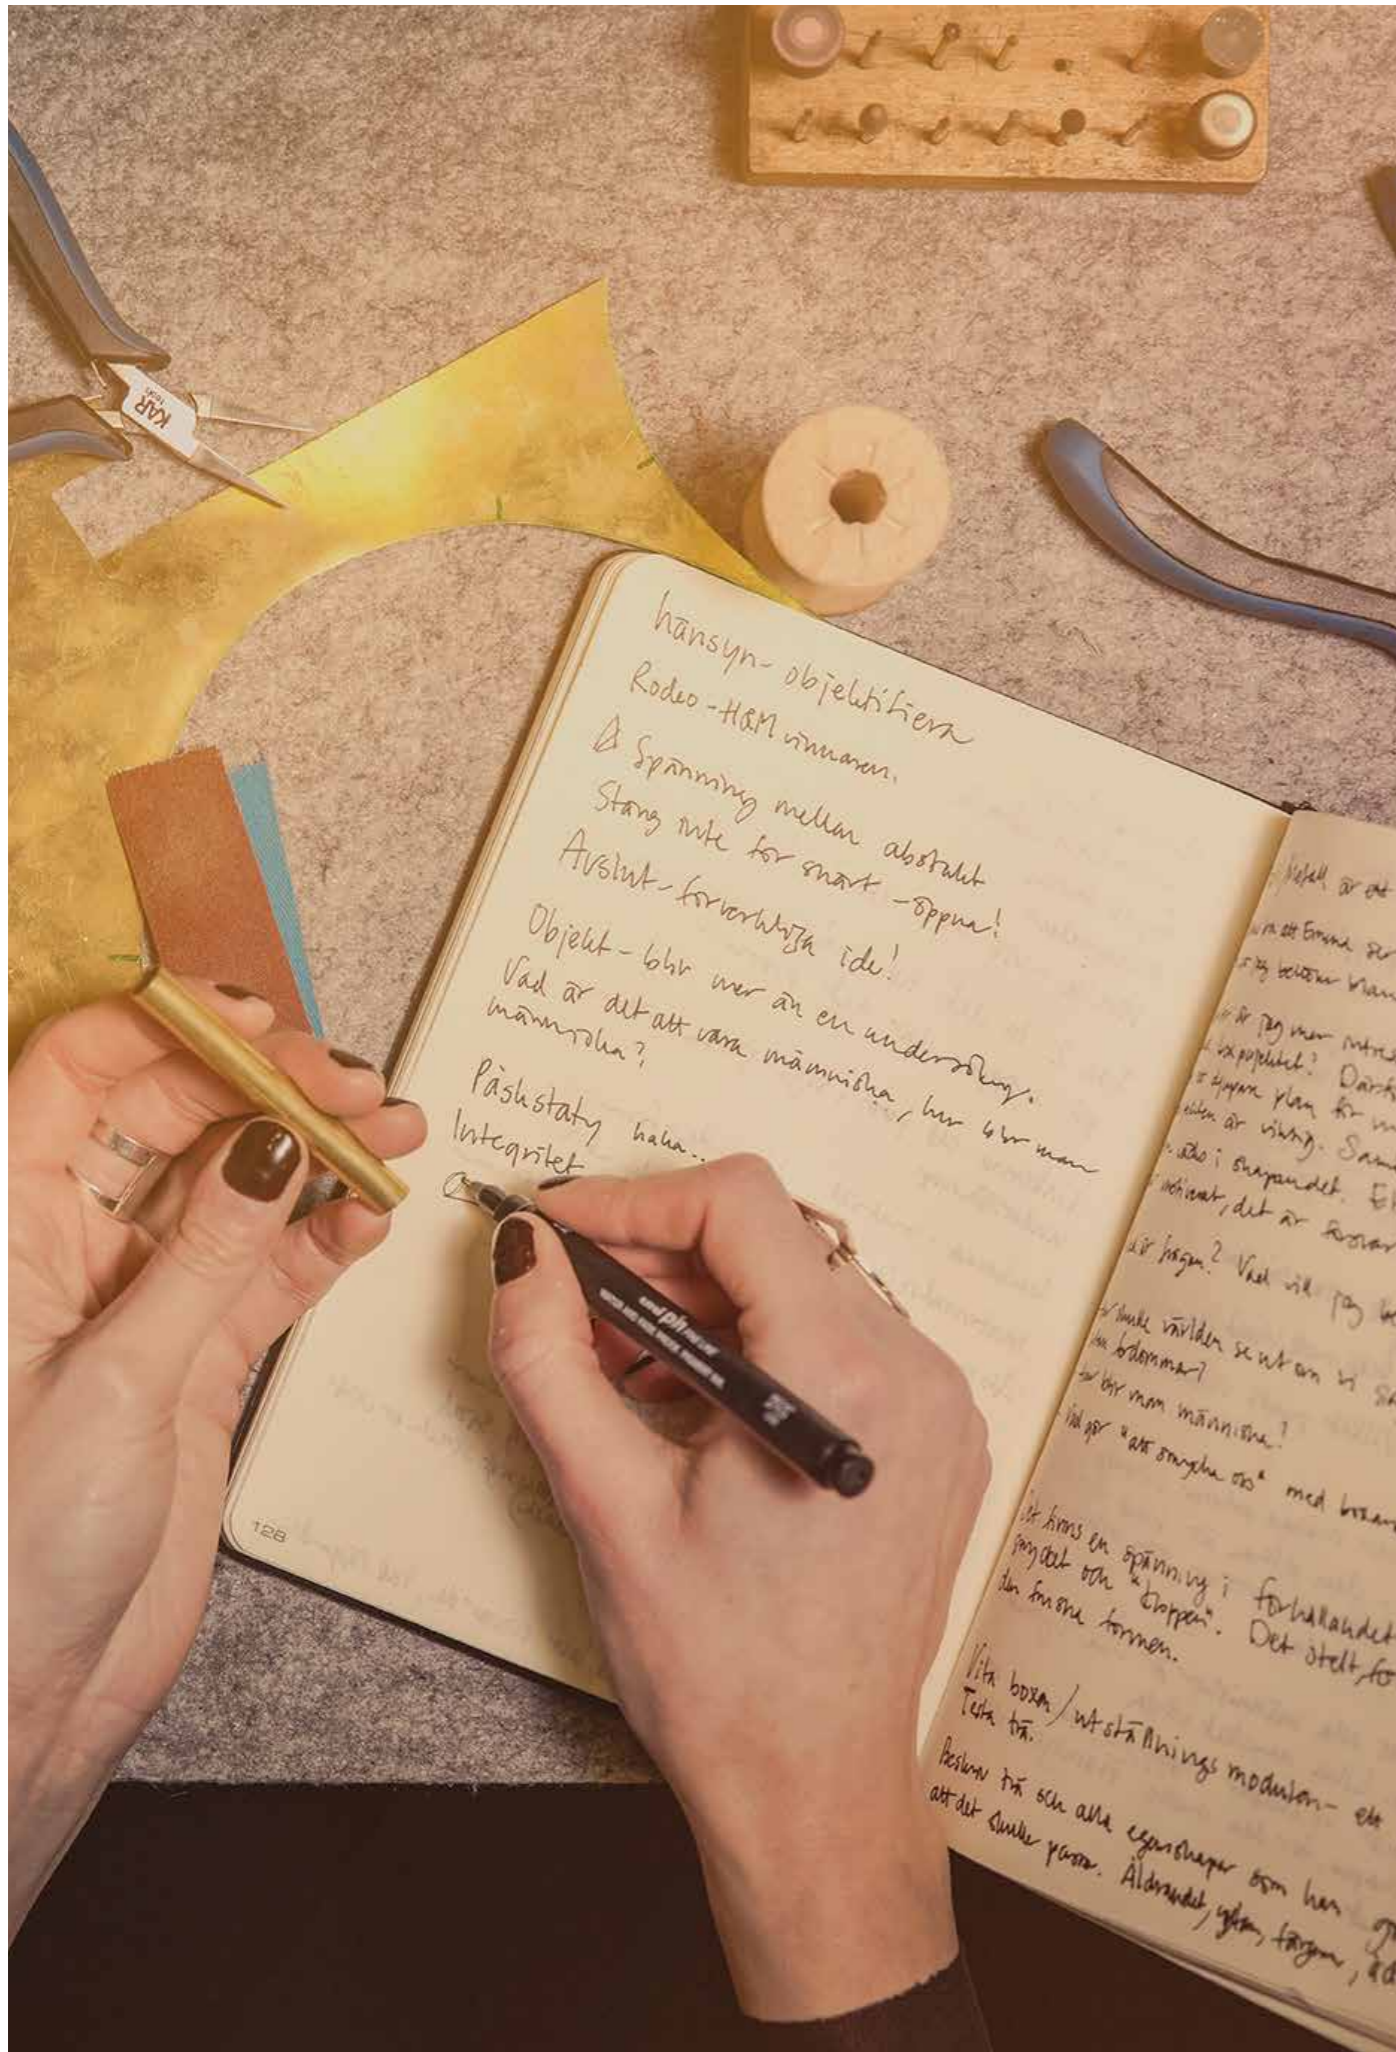 hänsyn - objektifiera
Rodeo - H&M vinnaren.
Spänning mellan abstrakt
Stäng inte för snart - öppna!
Avslut - förverkliga idé!
Objekt - blir mer än en undersökning.
Vad är det att vara människa, hur blir man
människa?
Påskstaty haha..
Integritet
128
Metall är ett
att Emma ser
jag behöver
är jag mer
plan för
är viktig.
i skapandet.
det är
frågan? Vad vill jag
skulle världen se ut om vi
fördomar?
blir man människa?
Vad gör "att smycka oss" med
Det finns en spänning i förhållandet
smycket och "kroppen". Det stelt,
formen.
Vita boxen / utställnings modulen - ett
Testa trä.
trä och alla egenskaper som han
att det skulle passa. Åldrandet, ytan, färgen,
KAR